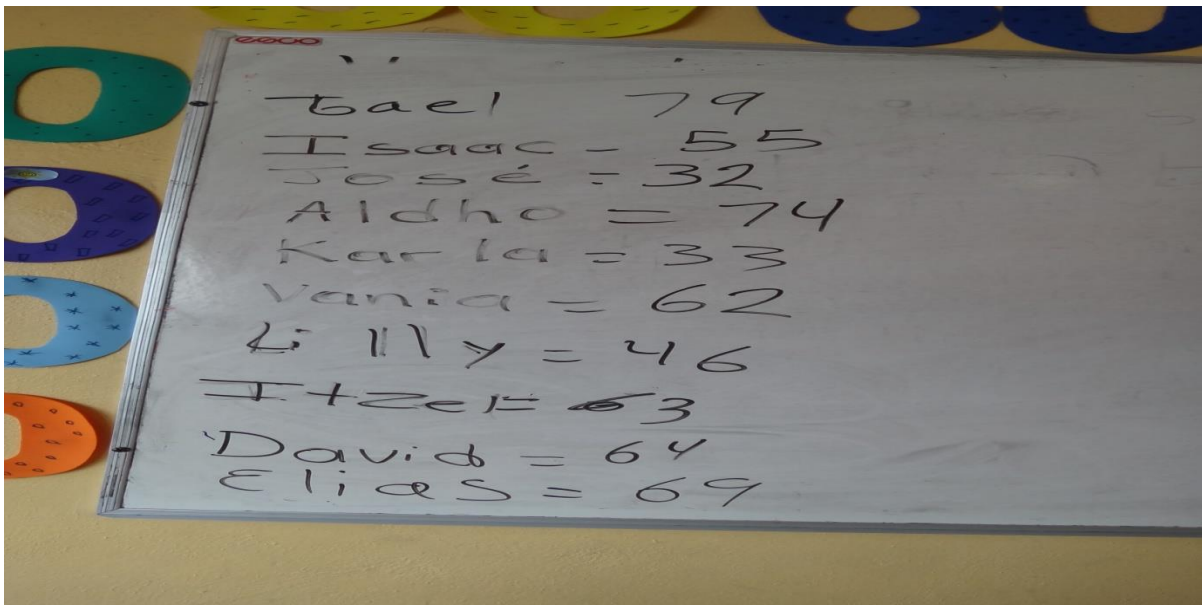 Gael 79
Isaac - 55
José = 32
Aldho = 74
Karla = 33
Vania = 62
Lilly = 46
Itzel = 63
David = 64
Elias = 69